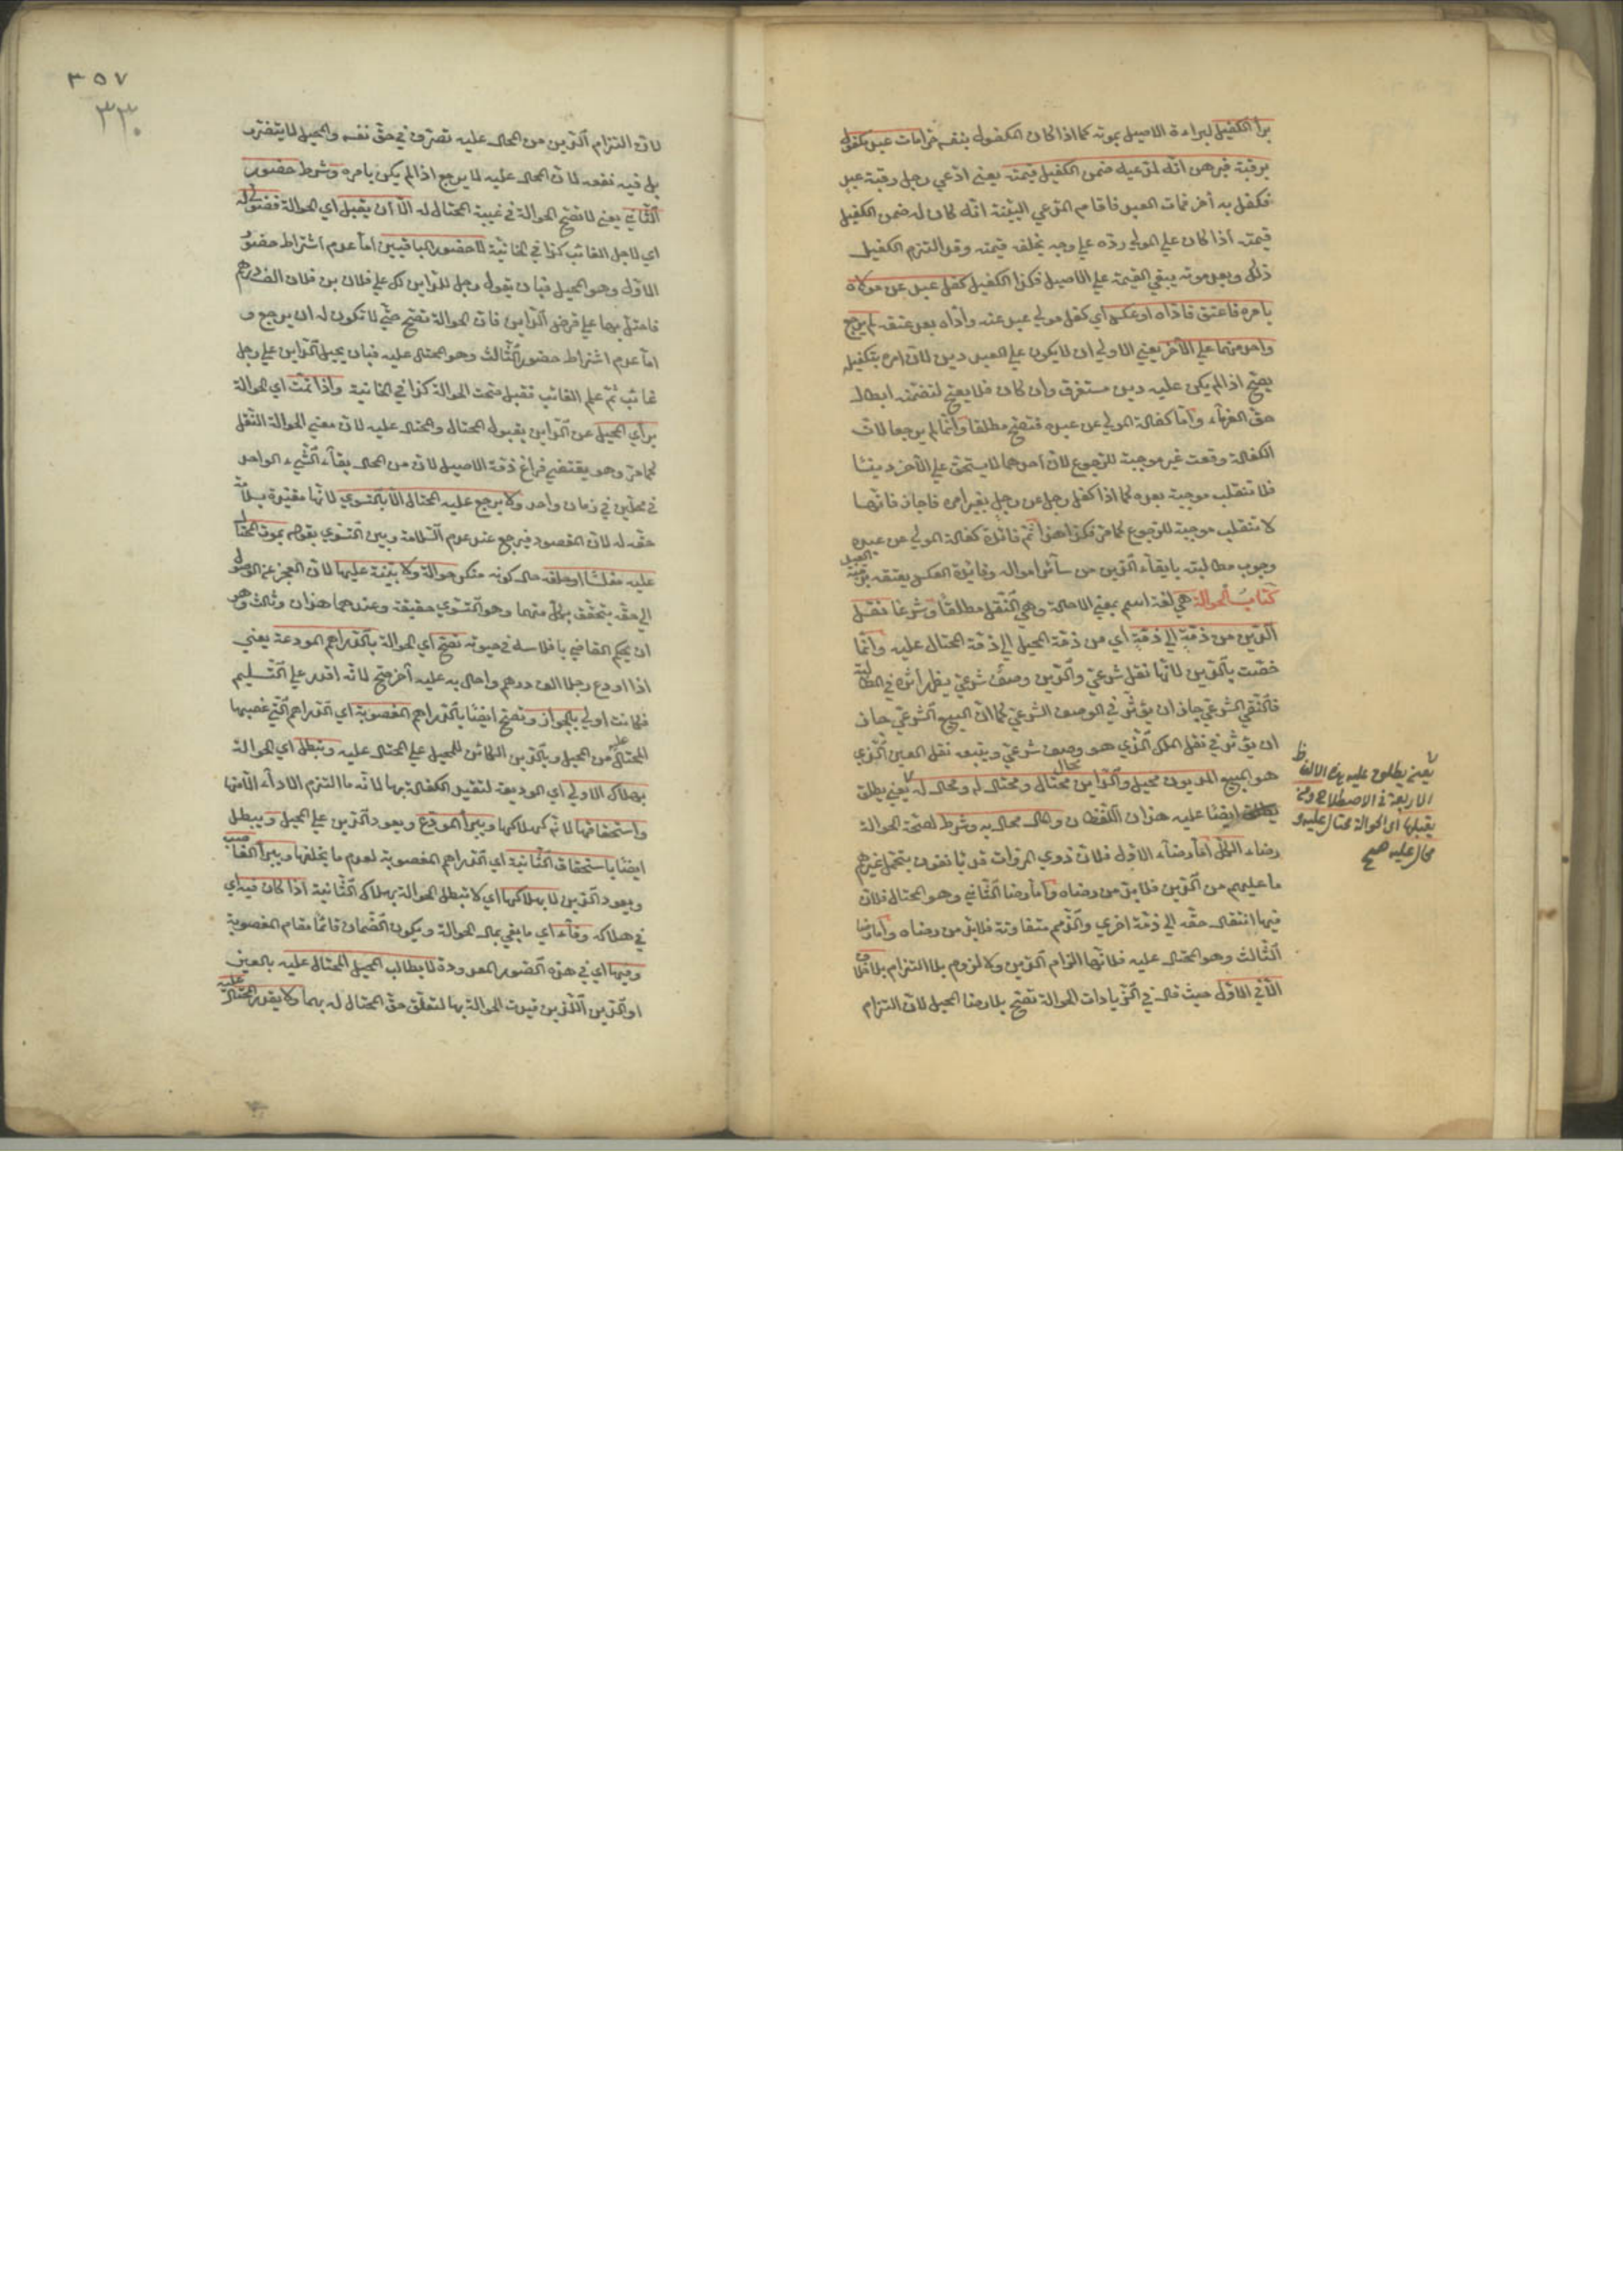 برأ الكفيل لبراءة الاصيل بموته كما اذا كان المكفول بنفسه حرا مات عبد مكفول
برقبته فبرهن انّه لمدّعيه ضمن الكفيل قيمته يعني ادّعي رجل رقبة عبد
فكفل به أخر فمات العبد فاقام المدّعي البيّنة انّه كان له ضمن الكفيل
قيمته اذا كان علي المولي ردّه علي وجه يخلفه قيمته وقد التزم الكفيل
ذلك وبعد موته يبقي القيمة علي الاصيل فكذا الكفيل كفل عبد عن مولاه
بامره فاعتق فادّاه او عكس أي كفل مولي عبد عنه وادّاه بعد عتقه لم يرجع
واحد منهما علي الآخر يعني الاولي ان لا يكون علي العبد دين لانّ امره بتكفيله
يصحّ اذا لم يكن عليه دين مستغرق وان كان فلا يصحّ لتضمّنه ابطال
حقّ الغرماء وامّا كفالة المولي عن عبده فتصحّ مطلقا وانّما لم يرجعا لانّ
الكفالة وقعت غير موجبة للرّجوع لانّ احدهما لا يستحقّ علي الآخر دينًا
فلا تنقلب موجبة بعده كما اذا كفل رجل عن رجل بغير امره فاجاز فانّها
لا تنقلب موجبة للرّجوع كما مرّ فكذا هذا ثمّ فائدة كفالة المولي عن عبده
وجوب مطالبته بايفاء الدّين من سائر امواله وفائدة العكس يعتقه برقبة
العبد
كتاب الحوالة هي لغة اسم بمعني الاحالة وهي النّقل مطلقًا وشرعًا نقل
الدّين من ذمّة الي ذمّة أي من ذمّة المحيل الي ذمّة المحتال عليه وانّما
خصّت بالدّين لانّها نقل شرعيّ والدّين وصف شرعيّ يظهر أثره في المطالبة
فالنّقل الشرعيّ جاز ان يؤثّر في الوصف الشرعيّ كما انّ البيع الشّرعيّ جاز
ان يؤثّر في نقل الملك الّذي هو وصف شرعيّ ويتبعه نقل العين الّذي
هو المبيع المديون محيل والدّاين محتال ومحتال له ومحال له يعني يطلق
محال
ايضًا عليه هذان اللّفظان والمال محال به وشرط لصحّة الحوالة
رضاء الكلّ امّا رضاء الاوّل فلانّ ذوي المروات قد يأنفون بتحمّل غيرهم
ما عليهم من الدّين فلا بدّ من رضاه وامّا رضا الثّاني وهو المحتال فلانّ
فيها انتقال حقّه الي ذمّة اخري والذّمم متفاوتة فلا بدّ من رضاه وامّا رضا
الثّالث وهو المحتال عليه فلانّها الزام الدّين ولا لزوم بلا التزام بلا خلاف
الّا في الاوّل حيث قال في الزّيادات الحوالة تصحّ بلا رضا المحيل لانّ التزام
يعني يطلق عليه هذه الالفاظ
الاربعة في الاصطلاح ومن
يقبلها اى الحوالة محتال عليه و
محال عليه صح
٣٥٧
٣٣٠
لانّ التزام الدّين من المحال عليه تصرّف في حقّ نفسه والمحيل لا يتضرّر
بل فيه نفعه لانّ المحال عليه لا يرجع اذا لم يكن بامره وشرط حضور
الثّاني يعني لا تصحّ الحوالة في غيبة المحتال له الّا ان يقبل اي الحوالة فضوليّ له
اي لاجل الغائب كذا في الخانيّة لا حضور الباقيين امّا عدم اشتراط حضور
الاوّل وهو المحيل فبان يقول رجل للدّاين لك علي فلان بن فلان الف درهم
فاحتل بها عليّ فرضي الدّاين فانّ الحوالة تصحّ حتّي لا تكون له ان يرجع و
امّا عدم اشتراط حضور الثّالث وهو المحتال عليه فبان يحيل الدّاين علي رجل
غائب ثمّ علم الغائب فقبل صحّت الحوالة كذا في الخانية واذا تمّت اي الحوالة
برأي المحيل عن الدّاين بقبول المحتال والمحتال عليه لانّ معني الحوالة النّقل
كما مرّ وهو يقتضي فراغ ذمّة الاصيل لانّ من المحال بقاء الشّيء الواحد
في محلّين في زمان واحد ولا يرجع عليه المحتال الّا بالتّوي لانّها مقيّدة بسلامة
حقّه له لانّ المقصود فيرجع عند عدم السّلامة وبين التّوي بقوله بموت المحتال
عليه مفلسًا او حلفه حال كونه منكر حوالة ولا بيّنة عليها لانّ العجز عن الوصول
الي حقّه يتحقّق بكلّ منهما وهو التّوي حقيقة وعندهما هذان وثالث وهو
ان يحكم القاضي بافلاسه في حيوته تصحّ أي الحوالة بالدّراهم المودعة يعني
اذا اودع رجلا الف درهم واحال به عليه أخر صحّ لانّه اقدر علي التّسليم
فكانت اولي بالجواز وتصحّ ايضًا بالدّراهم المغصوبة اي الدّراهم الّتي غصبها
المحتال عليه من المحيل وبالدّين الكائن للمحيل علي المحتال عليه وتبطل اي الحوالة
بهلاك الاولي أي الوديعة لتقيد الكفالة بها لانّه ما التزم الاداء الّا منها
واستحقاقها لانّه كهلاكها ويبرأ المودع ويعود الدّين علي المحيل ويبطل
ايضًا باستحقاق الثّانية اي الدّراهم المغصوبة لعدم ما يخلفها ويبرأ الغاصب
ويعود الدّين لا بهلاكها اي لا تبطل الحوالة بهلاك الثّانية اذا كان فيه اي
في هلاكه وفاء اي ما يفي بمال الحوالة ويكون الضّمان قائمًا مقام المغصوبة
وفيها اي في هذه الصّور المعدودة لا يطالب المحيل المحتال عليه بالعين
او الدّين اللّذين قيدت الحوالة بها لتعلّق حقّ المحتال له بهما ولا يقدر المحتال عليه